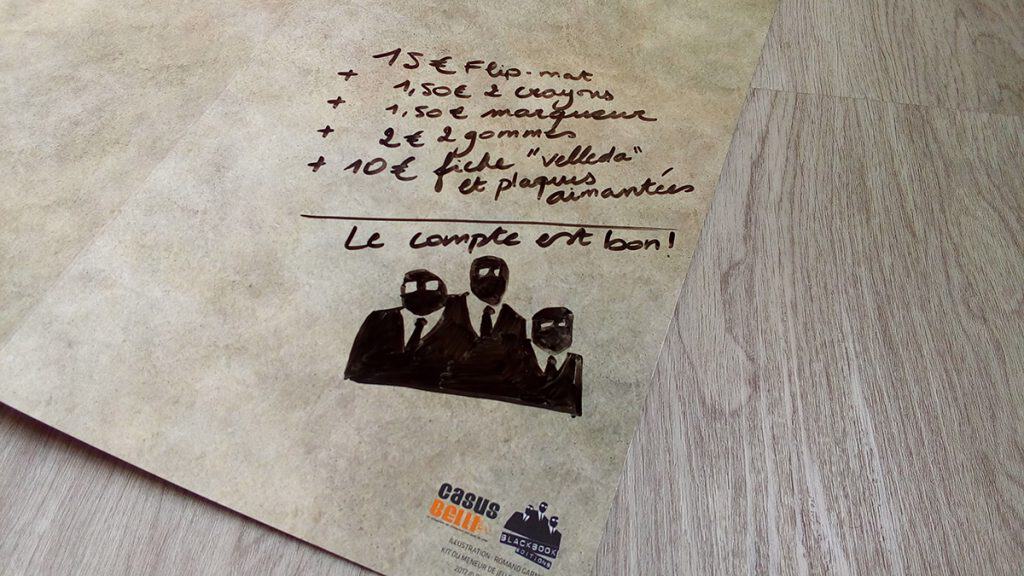 15 € Flip-mat
+ 1,50€ 2 crayons
+ 1,50€ marqueur
+ 2€ 2 gommes
+ 10€ fiche "velleda"
et plaques
aimantées
Le compte est bon!
casus
belli
BLACKBOOK
EDITIONS
ILLUSTRATION : ROMANO
KIT DU MENEUR DE
2017